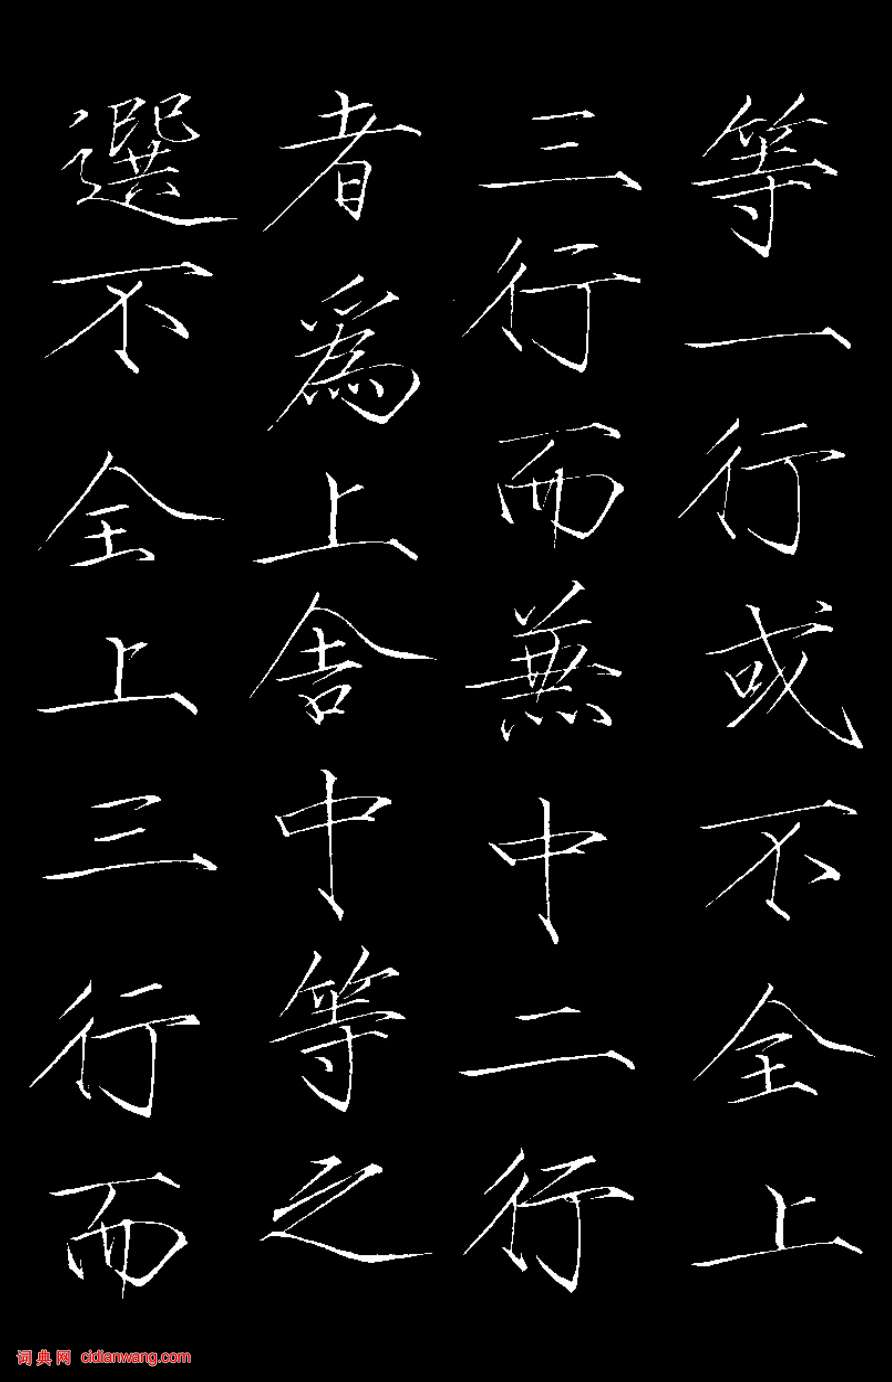 等一行或不全上
三行而無中二行
者為上舍中等之
選不全上三行而
词典网 cidianwang.com